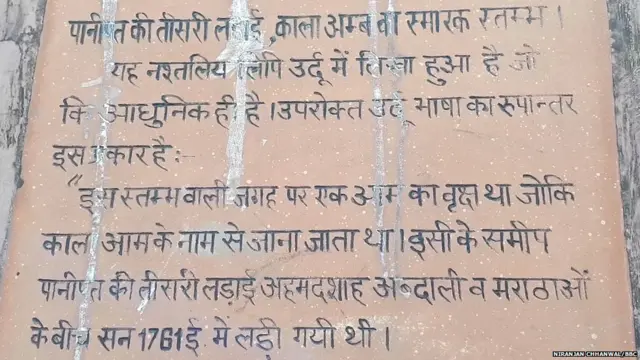 पानीपत की तीसरी लड़ाई, काला अम्ब का स्मारक स्तम्भ।
यह नश्तलिय लिपि उर्दू में लिखा हुआ है जो
कि आधुनिक ही है। उपरोक्त उर्दू भाषा का रुपान्तर
इस प्रकार है:-
"इस स्तम्भ वाली जगह पर एक आम का वृक्ष था जोकि
काला आम के नाम से जाना जाता था। इसी के समीप
पानीपत की तीसरी लड़ाई अहमदशाह अब्दाली व मराठाओं
के बीच सन 1761 ई में लड़ी गयी थी।
NIRANJAN CHHANWAL/BBC